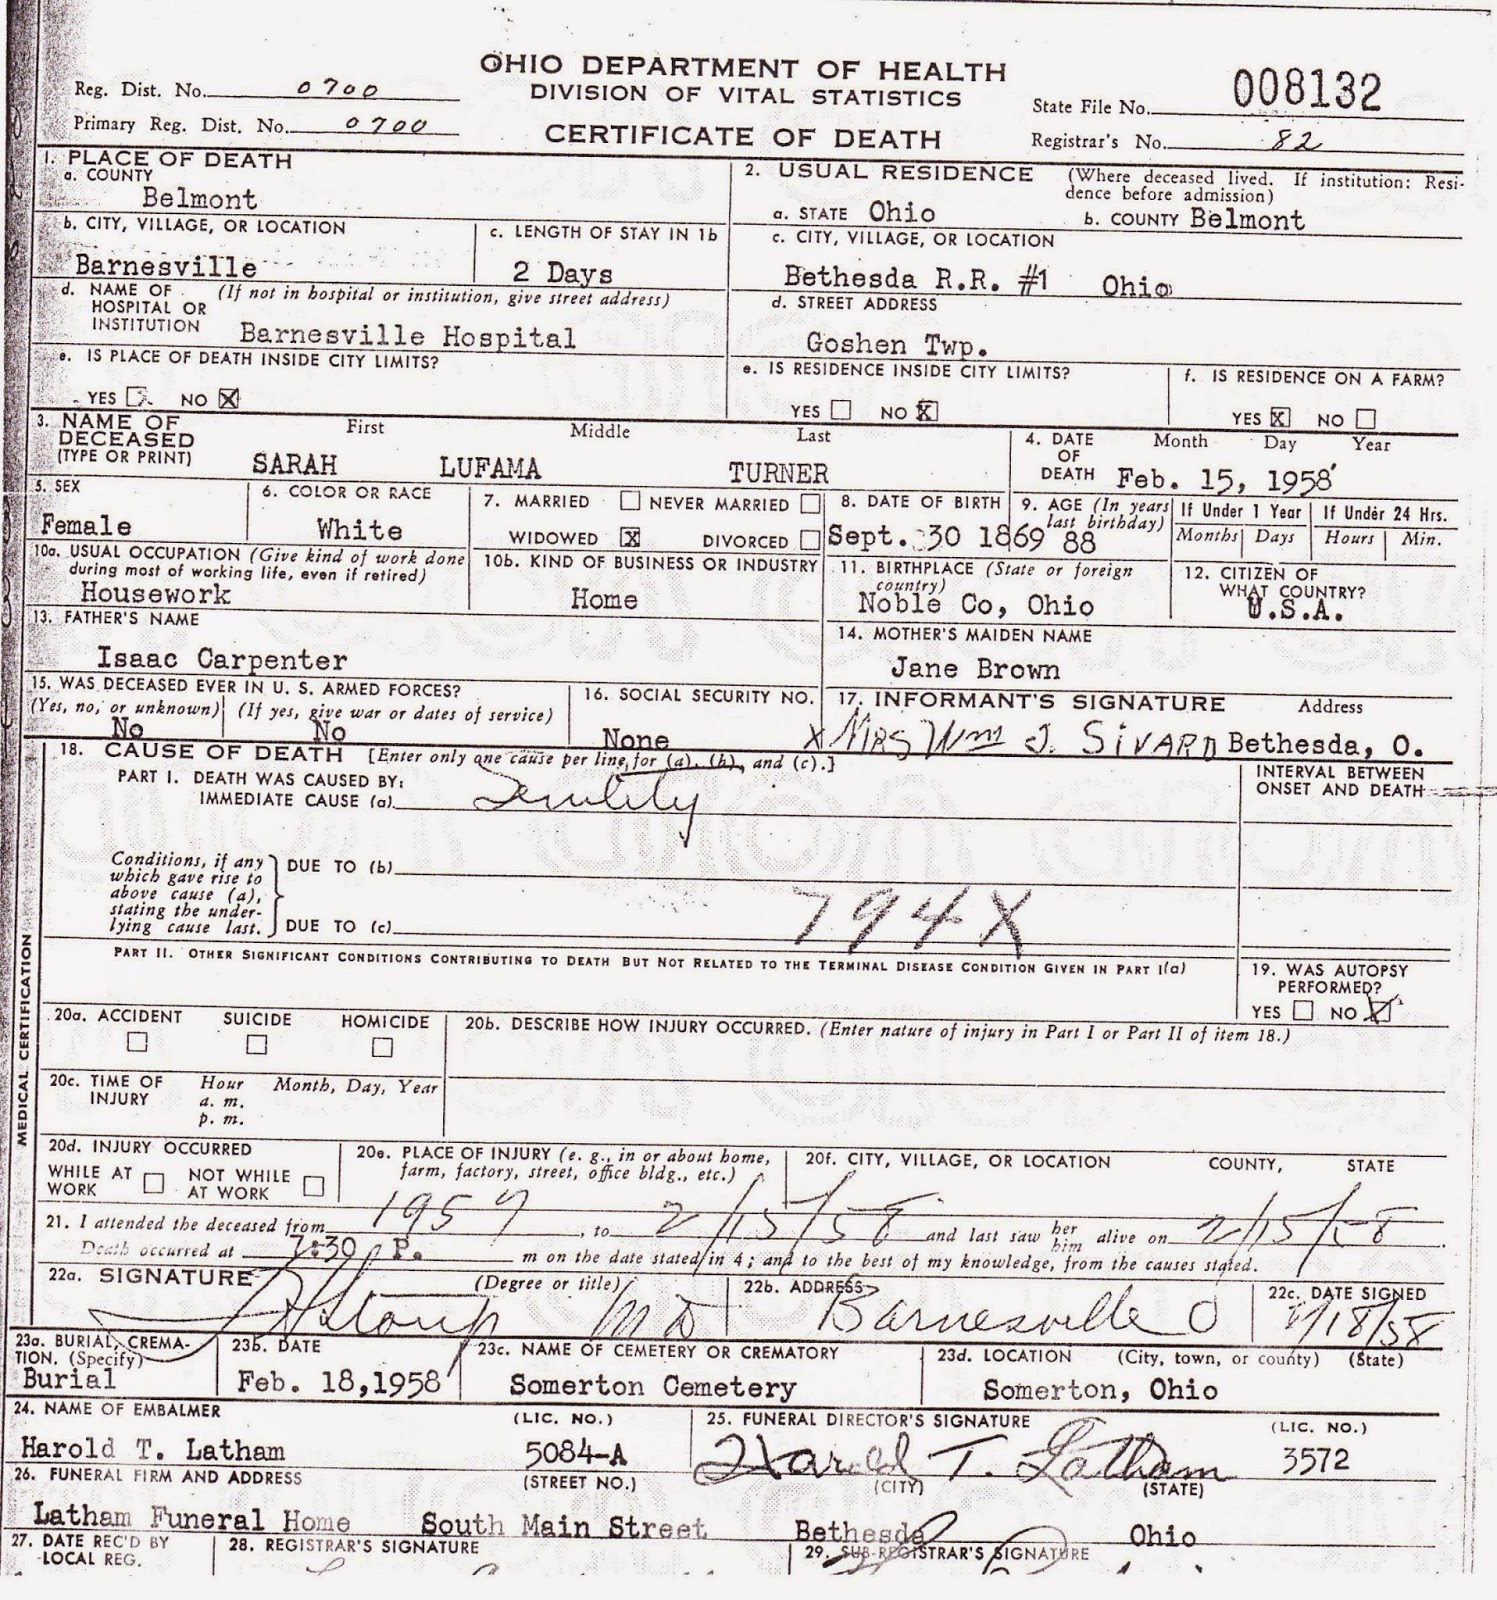 OHIO DEPARTMENT OF HEALTH
DIVISION OF VITAL STATISTICS
CERTIFICATE OF DEATH
Reg. Dist. No. 0700
Primary Reg. Dist. No. 0700
State File No. 008132
Registrar's No. 82
1. PLACE OF DEATH
a. COUNTY
Belmont
2. USUAL RESIDENCE (Where deceased lived. If institution: Resi-
dence before admission)
a. STATE Ohio b. COUNTY Belmont
b. CITY, VILLAGE, OR LOCATION
Barnesville
c. LENGTH OF STAY IN 1b
2 Days
c. CITY, VILLAGE, OR LOCATION
Bethesda R.R. #1 Ohio
d. NAME OF (If not in hospital or institution, give street address)
HOSPITAL OR
INSTITUTION Barnesville Hospital
d. STREET ADDRESS
Goshen Twp.
e. IS PLACE OF DEATH INSIDE CITY LIMITS?
YES NO X
e. IS RESIDENCE INSIDE CITY LIMITS?
YES NO X
f. IS RESIDENCE ON A FARM?
YES X NO
3. NAME OF
DECEASED
(TYPE OR PRINT)
First Middle Last
SARAH LUFAMA TURNER
4. DATE
OF
DEATH
Month Day Year
Feb. 15, 1958
5. SEX
Female
6. COLOR OR RACE
White
7. MARRIED NEVER MARRIED
WIDOWED X DIVORCED
8. DATE OF BIRTH
Sept. 30 1869
9. AGE (In years
last birthday)
88
If Under 1 Year
Months Days
If Under 24 Hrs.
Hours Min.
10a. USUAL OCCUPATION (Give kind of work done
during most of working life, even if retired)
Housework
10b. KIND OF BUSINESS OR INDUSTRY
Home
11. BIRTHPLACE (State or foreign
country)
Noble Co, Ohio
12. CITIZEN OF
WHAT COUNTRY?
U.S.A.
13. FATHER'S NAME
Isaac Carpenter
14. MOTHER'S MAIDEN NAME
Jane Brown
15. WAS DECEASED EVER IN U. S. ARMED FORCES?
(Yes, no, or unknown) (If yes, give war or dates of service)
No No
16. SOCIAL SECURITY NO.
None
17. INFORMANT'S SIGNATURE Address
X MRS Wm J. SIVARD Bethesda, O.
MEDICAL CERTIFICATION
18. CAUSE OF DEATH [Enter only one cause per line for (a), (b), and (c).]
PART I. DEATH WAS CAUSED BY:
IMMEDIATE CAUSE (a) Senility
INTERVAL BETWEEN
ONSET AND DEATH
Conditions, if any
which gave rise to
above cause (a),
stating the under-
lying cause last.
DUE TO (b)
DUE TO (c)
794X
PART II. OTHER SIGNIFICANT CONDITIONS CONTRIBUTING TO DEATH BUT NOT RELATED TO THE TERMINAL DISEASE CONDITION GIVEN IN PART I(a)
19. WAS AUTOPSY
PERFORMED?
YES NO X
20a. ACCIDENT SUICIDE HOMICIDE
20b. DESCRIBE HOW INJURY OCCURRED. (Enter nature of injury in Part I or Part II of item 18.)
20c. TIME OF
INJURY
Hour Month, Day, Year
a. m.
p. m.
20d. INJURY OCCURRED
WHILE AT
WORK
NOT WHILE
AT WORK
20e. PLACE OF INJURY (e. g., in or about home,
farm, factory, street, office bldg., etc.)
20f. CITY, VILLAGE, OR LOCATION COUNTY, STATE
21. I attended the deceased from 1957, to 2/15/58 and last saw her him alive on 2/15/58.
Death occurred at 7:30 P. m on the date stated in 4; and to the best of my knowledge, from the causes stated.
22a. SIGNATURE (Degree or title)
MD
22b. ADDRESS
Barnesville O
22c. DATE SIGNED
/18/58
23a. BURIAL, CREMA-
TION. (Specify)
Burial
23b. DATE
Feb. 18, 1958
23c. NAME OF CEMETERY OR CREMATORY
Somerton Cemetery
23d. LOCATION (City, town, or county) (State)
Somerton, Ohio
24. NAME OF EMBALMER (LIC. NO.)
Harold T. Latham 5084-A
25. FUNERAL DIRECTOR'S SIGNATURE (LIC. NO.)
Harold T. Latham 3572
26. FUNERAL FIRM AND ADDRESS (STREET NO.) (CITY) (STATE)
Latham Funeral Home South Main Street Bethesda Ohio
27. DATE REC'D BY
LOCAL REG.
28. REGISTRAR'S SIGNATURE
29. SUB-REGISTRAR'S SIGNATURE